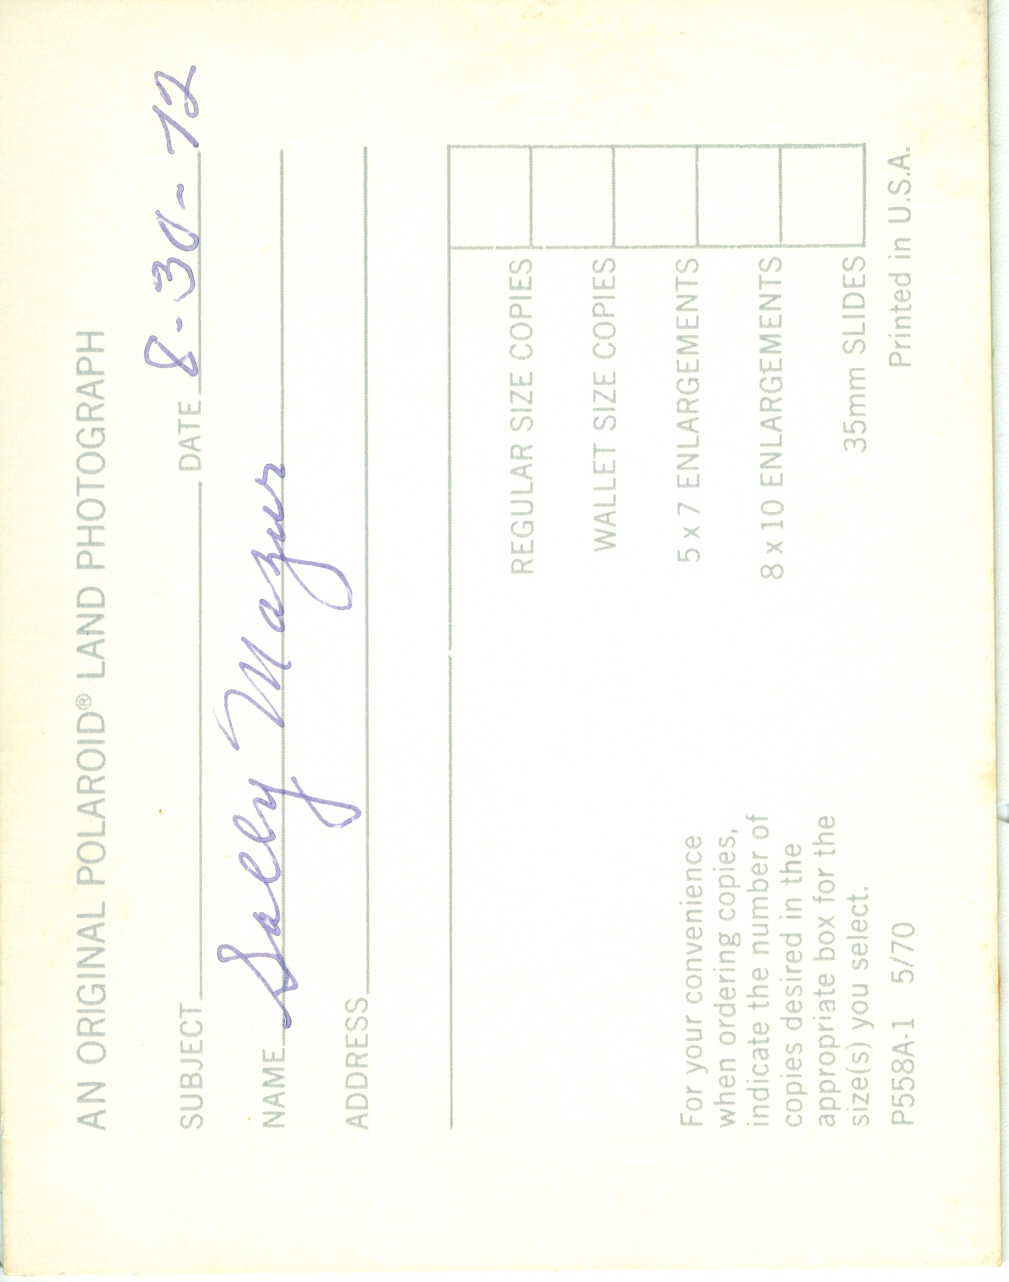 AN ORIGINAL POLAROID® LAND PHOTOGRAPH
SUBJECT DATE 8-30-72
NAME Sally Mazur
ADDRESS
REGULAR SIZE COPIES
WALLET SIZE COPIES
5 x 7 ENLARGEMENTS
8 x 10 ENLARGEMENTS
35mm SLIDES
For your convenience
when ordering copies,
indicate the number of
copies desired in the
appropriate box for the
size(s) you select.
P558A-1 5/70 Printed in U.S.A.